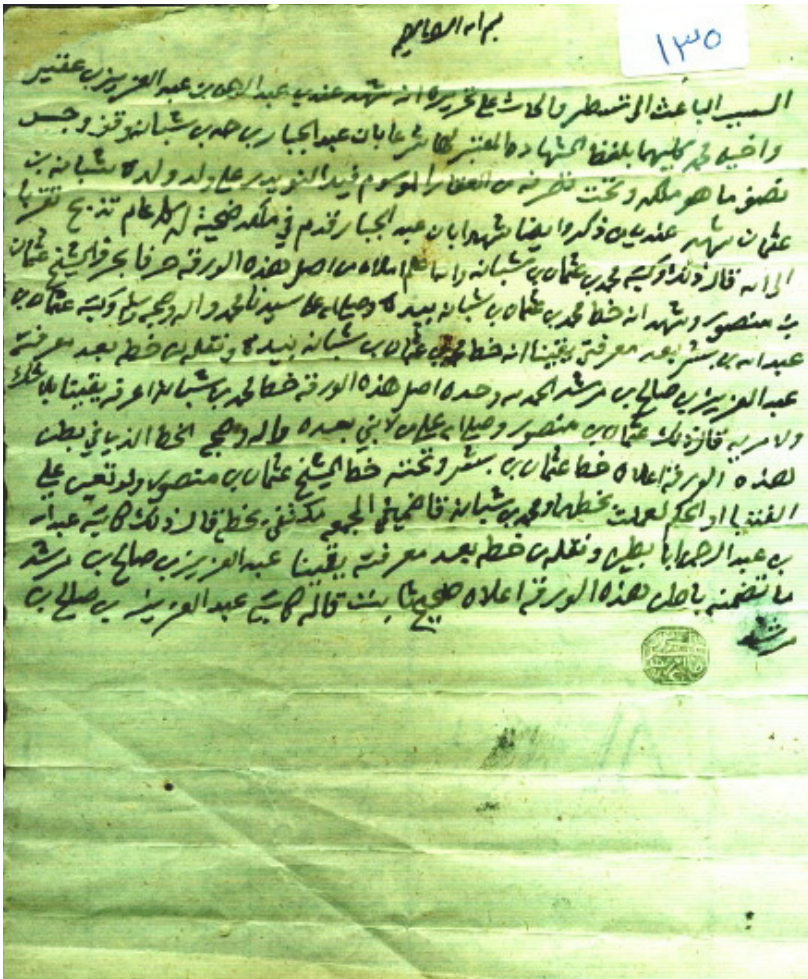 ١٣٥
بسم الله الرحمن الرحيم
السبب الباعث الى تسطيره والحاث على تحريره انه شهد عندي عبد الوهاب بن عبد العزيز بن عقيل
واخيه محمد كليهما بلفظ الشهادة المعتبر شرعا بان عبد الجبار بن حمد بن شبانه وقف وحبس
نصف ما هو ملكه وتحت تصرفه من العقار الموسوم فيد النويدر على ولد ولده شبانه بن
عثمان شهد عندي من ذكر وايضا شهد ابان عبد الجبار قدم في ملكه ضحية له كل عام تذبح تقربا
الى الله قال ذلك وكتبه محمد بن عثمان بن شبانه والله اعلم املاه من اصل هذه الورقة حرفا بحرف الشيخ عثمان
بن منصور وشهد انه خط محمد بن عثمان بن شبانه بيده وصلى الله على سيدنا محمد واله وصحبه وسلم وكتبه عثمان بن
عبد الله بن بشر بعد معرفتي يقينا انه خط محمد بن عثمان بن شبانه بيده ونقله من خطه بعد معرفته
عبد العزيز بن صالح بن مرشد الحمد لله وحده اصل هذه الورقة خط محمد بن شبانه اعرفه يقينا بلا شك
ولا مريه قال ذلك عثمان بن منصور وصلى الله على من لا نبي بعده واله وصحبه الخط الذي في بطن
هذه الورقة اعلاه خط عثمان بن بشر وتحته خط الشيخ عثمان بن منصور ولو تعين علي
الفتيا او الحكم لعملت بخطهما ومحمد بن شبانه قاضي في المجمعه يكتفى بخطه قال ذلك كاتبه عبد الله
بن عبد الرحمن ابا بطين ونقله من خطه بعد معرفته يقينا عبد العزيز بن صالح بن مرشد
ما تضمنه باطن هذه الورقة اعلاه صحيح ثابت قاله كاتبه عبد العزيز بن صالح بن
مرشد